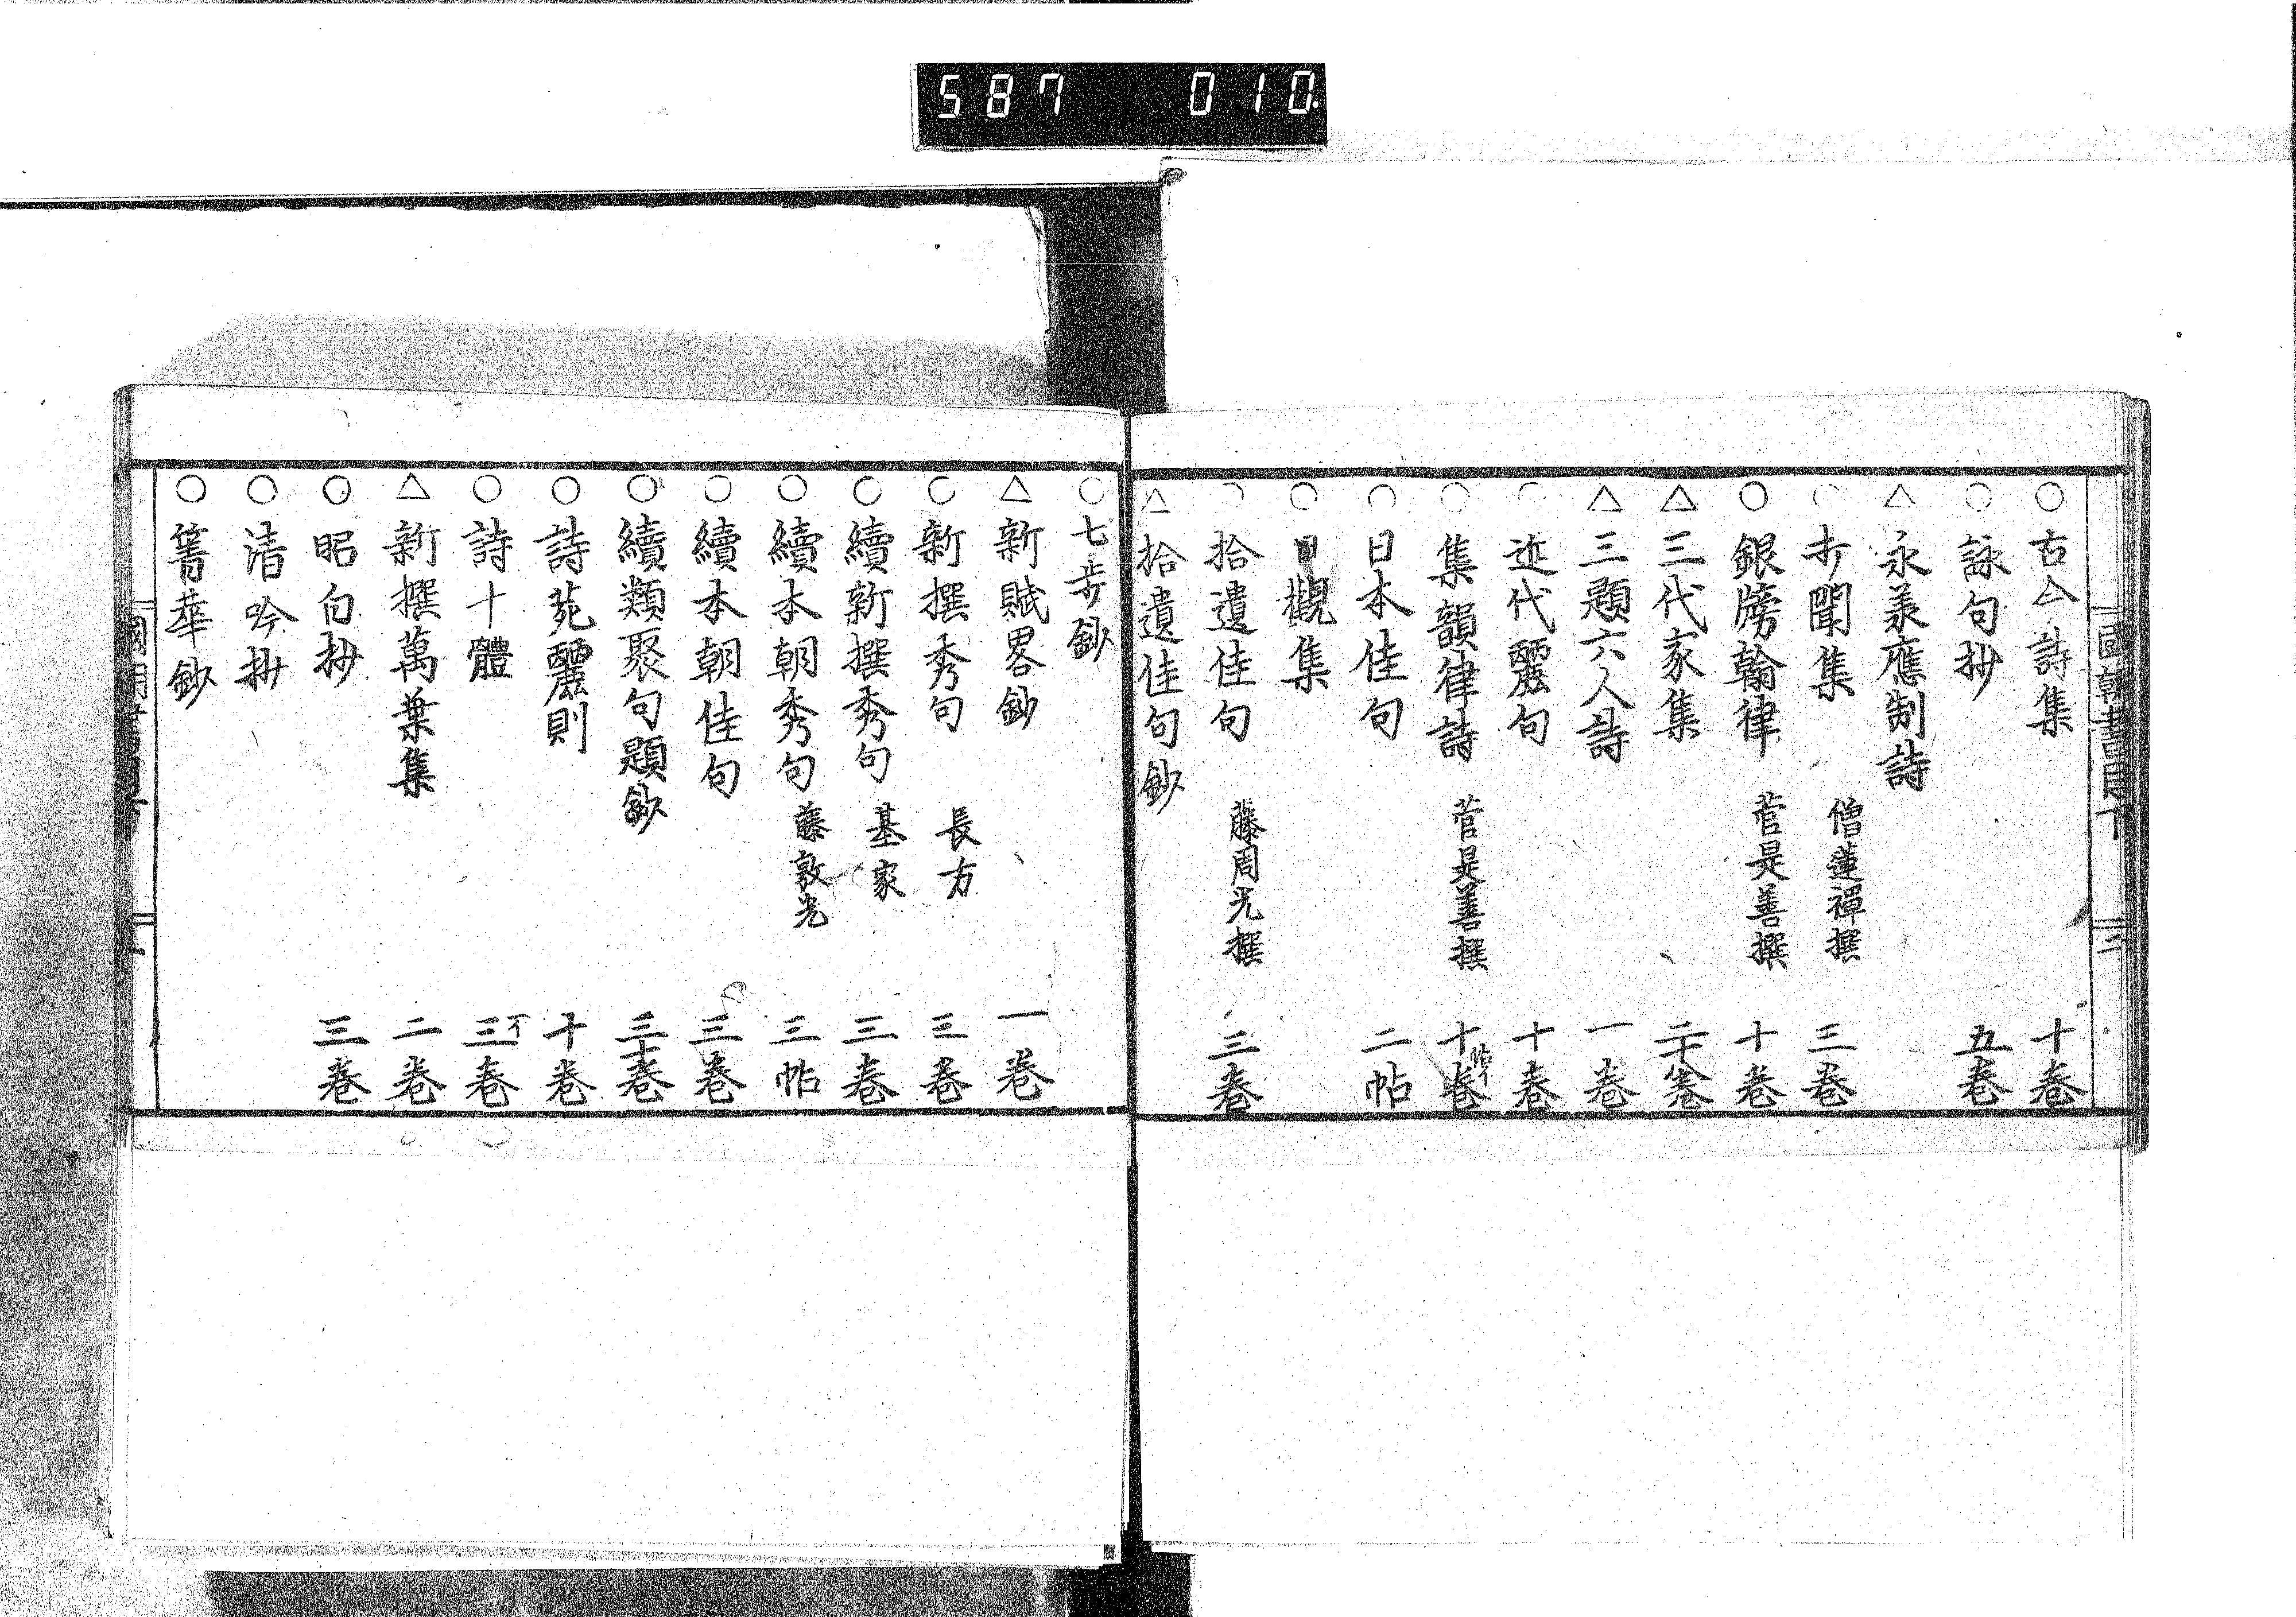 587 010
國朝書目下 三
○古今詩集 十卷
○詠句抄 五卷
△永羕應制詩
○扑聞集 僧蓮禪撰 三卷
○銀牓翰律 菅是善撰 十卷
△三代家集 二十八卷
△三題六人詩 一卷
○近代麗句 十卷
○集韻律詩 菅是善撰 十卷 帖イ
○日本佳句 二帖
○日觀集
○拾遺佳句 藤周光撰 三卷
△拾遺佳句鈔
○七步鈔
△新賦畧鈔 一卷
○新撰秀句 長方 三卷
○續新撰秀句 基家 三卷
○續本朝秀句 藤敦光 三帖
○續本朝佳句 三卷
○續類聚句題鈔 三十卷
○詩苑麗則 十卷
○詩十體 三卷
△新撰萬葉集 二卷
○昭句抄 三卷
○清吟抄
○箐華鈔